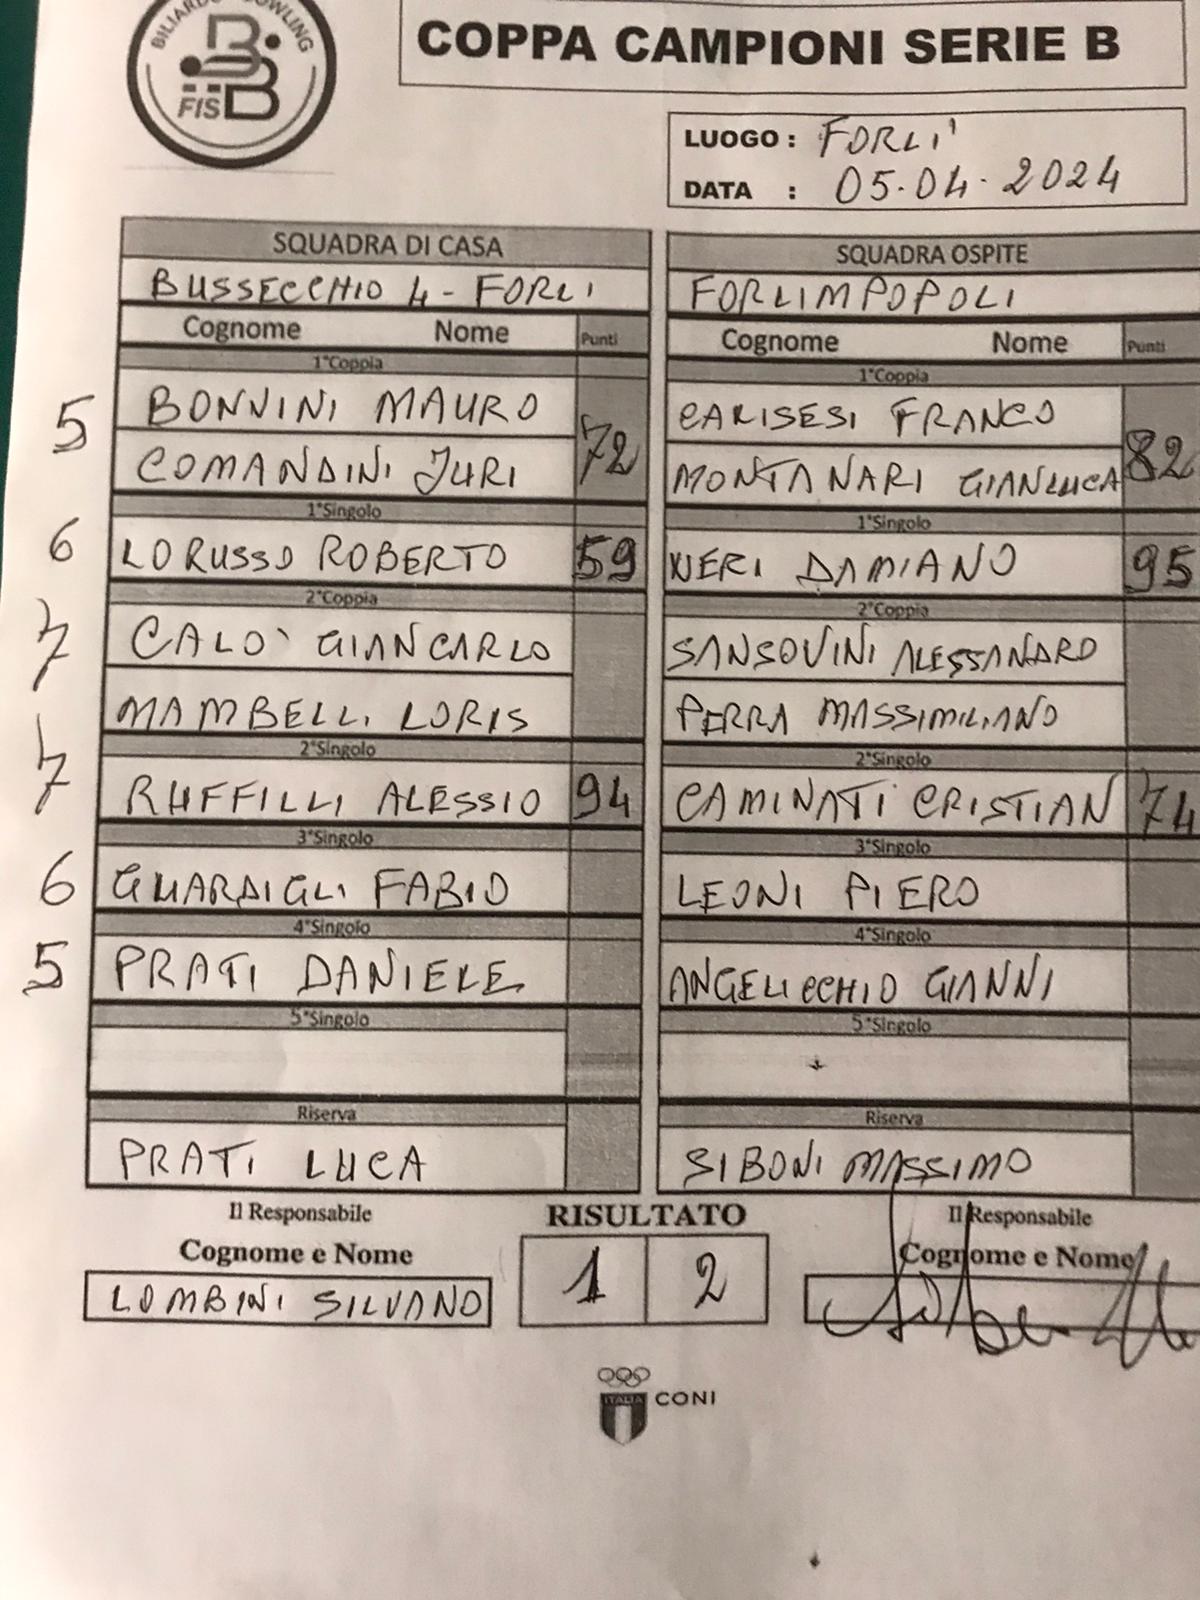 BILIARDO BOWLING
FISBB
COPPA CAMPIONI SERIE B
LUOGO : FORLI'
DATA : 05.04.2024
SQUADRA DI CASA SQUADRA OSPITE
BUSSECCHIO 4 - FORLI FORLIMPOPOLI
Cognome Nome Punti Cognome Nome Punti
1°Coppia 1°Coppia
5 BONVINI MAURO 72 CARISESI FRANCO 82
COMANDINI JURI MONTANARI GIANLUCA
1°Singolo 1°Singolo
6 LORUSSO ROBERTO 59 NERI DAMIANO 95
2°Coppia 2°Coppia
7 CALO' GIANCARLO SANSOVINI ALESSANDRO
MAMBELLI LORIS PERRA MASSIMILIANO
2°Singolo 2°Singolo
7 RUFFILLI ALESSIO 94 CAMINATI CRISTIAN 74
3°Singolo 3°Singolo
6 GUARDIGLI FABIO LEONI PIERO
4°Singolo 4°Singolo
5 PRATI DANIELE ANGELICCHIO GIANNI
5°Singolo 5°Singolo
Riserva Riserva
PRATI LUCA SIBONI MASSIMO
Il Responsabile RISULTATO Il Responsabile
Cognome e Nome Cognome e Nome
LOMBINI SILVANO 1 2
ITALIA CONI